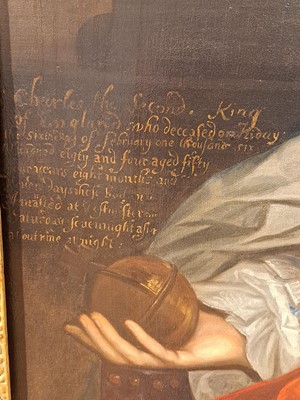 Charles the Second. King
of England who deceased on Friday
the sixth of February one thousand six
hundred eighty and four aged fifty
years eight months and
days whose body
att
Saturday sevennight after
about nine at night.